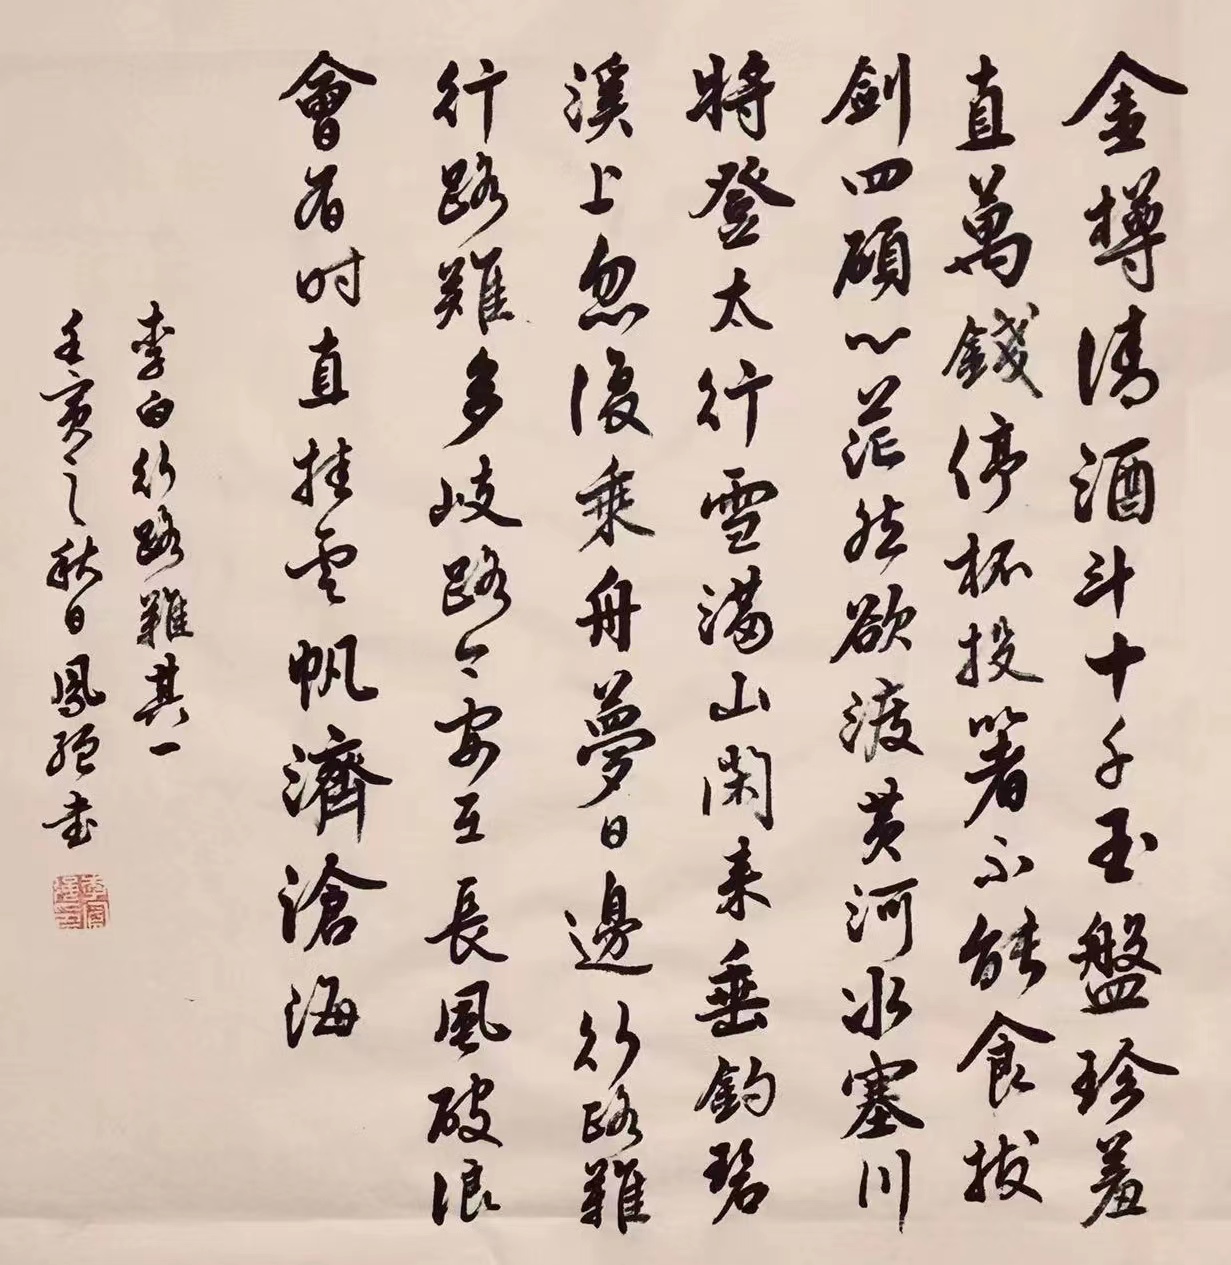 金樽清酒斗十千玉盤珍羞
直萬錢停杯投箸不能食拔
劍四顧心茫然欲渡黃河冰塞川
將登太行雪滿山閑來垂釣碧
溪上忽復乘舟夢日邊行路難
行路難多岐路今安在長風破浪
會有時直挂雲帆濟滄海
李白行路難其一
壬寅之秋日鳳書